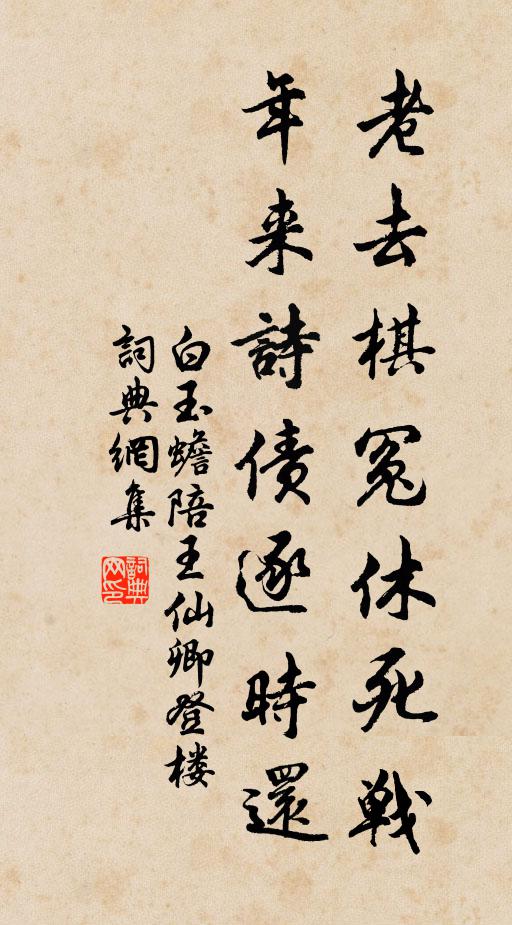 老去棋冤休死戦
年来詩债逐時還
白玉蟾陪王仙卿登楼
詞典網集
詞典网印